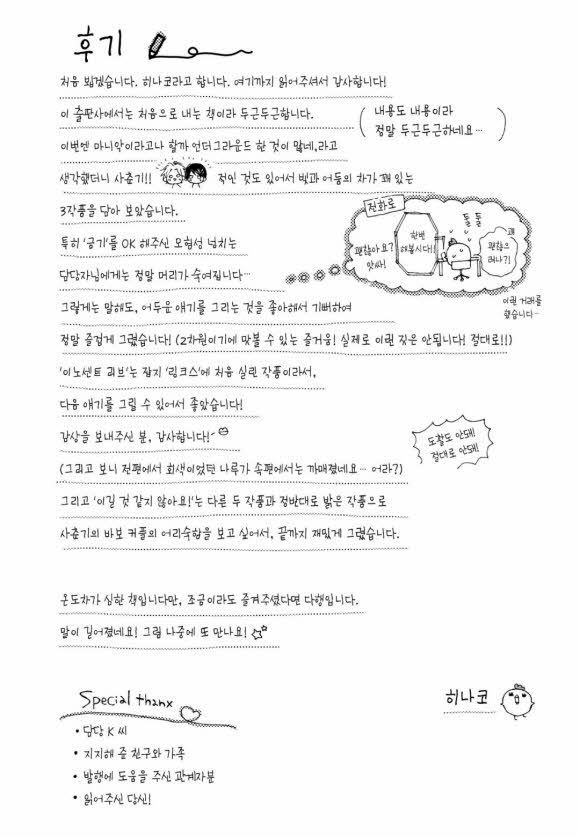 후기
처음 뵙겠습니다. 히나코라고 합니다. 여기까지 읽어주셔서 감사합니다!
이 출판사에서는 처음으로 내는 책이라 두근두근합니다.
(내용도 내용이라
정말 두근두근하네요…)
이번엔 마니악이라고나 할까 언더그라운드 한 것이 많네,라고
생각했더니 사춘기!! 적인 것도 있어서 빛과 어둠의 차가 꽤 있는
3작품을 담아 보았습니다.
특히 '궁기'를 OK 해주신 모험성 넘치는
담당자님에게는 정말 머리가 숙여집니다…
전화로
괜찮아요?
맛싸!
한번
해봅시다!
둘 둘
꽤
괜찮으
려나?!
이런 거래를
했습니다…
그렇게는 말해도, 어두운 얘기를 그리는 것을 좋아해서 기뻐하여
정말 즐겁게 그렸습니다! (2차원이기에 맛볼 수 있는 즐거움! 실제로 이런 짓은 안됩니다! 절대로!!)
'이노센트 러브'는 잡지 '링크스'에 처음 실린 작품이라서,
다음 얘기를 그릴 수 있어서 좋았습니다!
감상을 보내주신 분, 감사합니다!
도촬도 안돼!
절대로 안돼!
(그리고 보니 전편에서 회색이었던 나루가 속편에서는 까매졌네요… 어라?)
그리고 '이길 것 같지 않아요!'는 다른 두 작품과 정반대로 밝은 작품으로
사춘기의 바보 커플의 어리숙함을 보고 싶어서, 끝까지 재밌게 그렸습니다.
온도차가 심한 책입니다만, 조금이라도 즐겨주셨다면 다행입니다.
말이 길어졌네요! 그럼 나중에 또 만나요!
히나코
Special thanx
• 담당 K 씨
• 지지해 준 친구와 가족
• 발행에 도움을 주신 관계자분
• 읽어주신 당신!